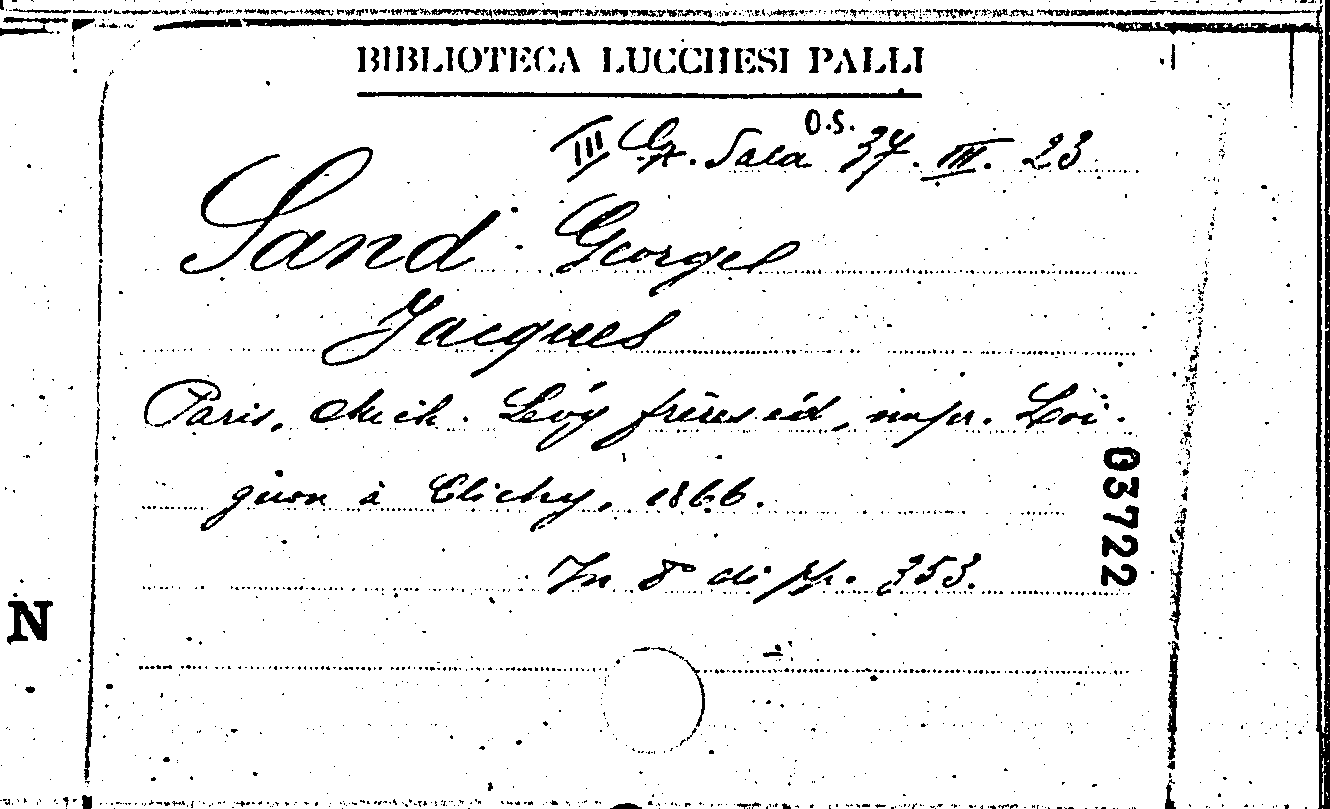 BIBLIOTECA LUCCHESI PALLI
O.S.
III Gr. Sala 37. III. 23
Sand George
Jacques
Paris, Mich. Lévy frères éd, impr. Loi-
gnon à Clichy, 1866.
In 8° di pp. 353.
03722
N